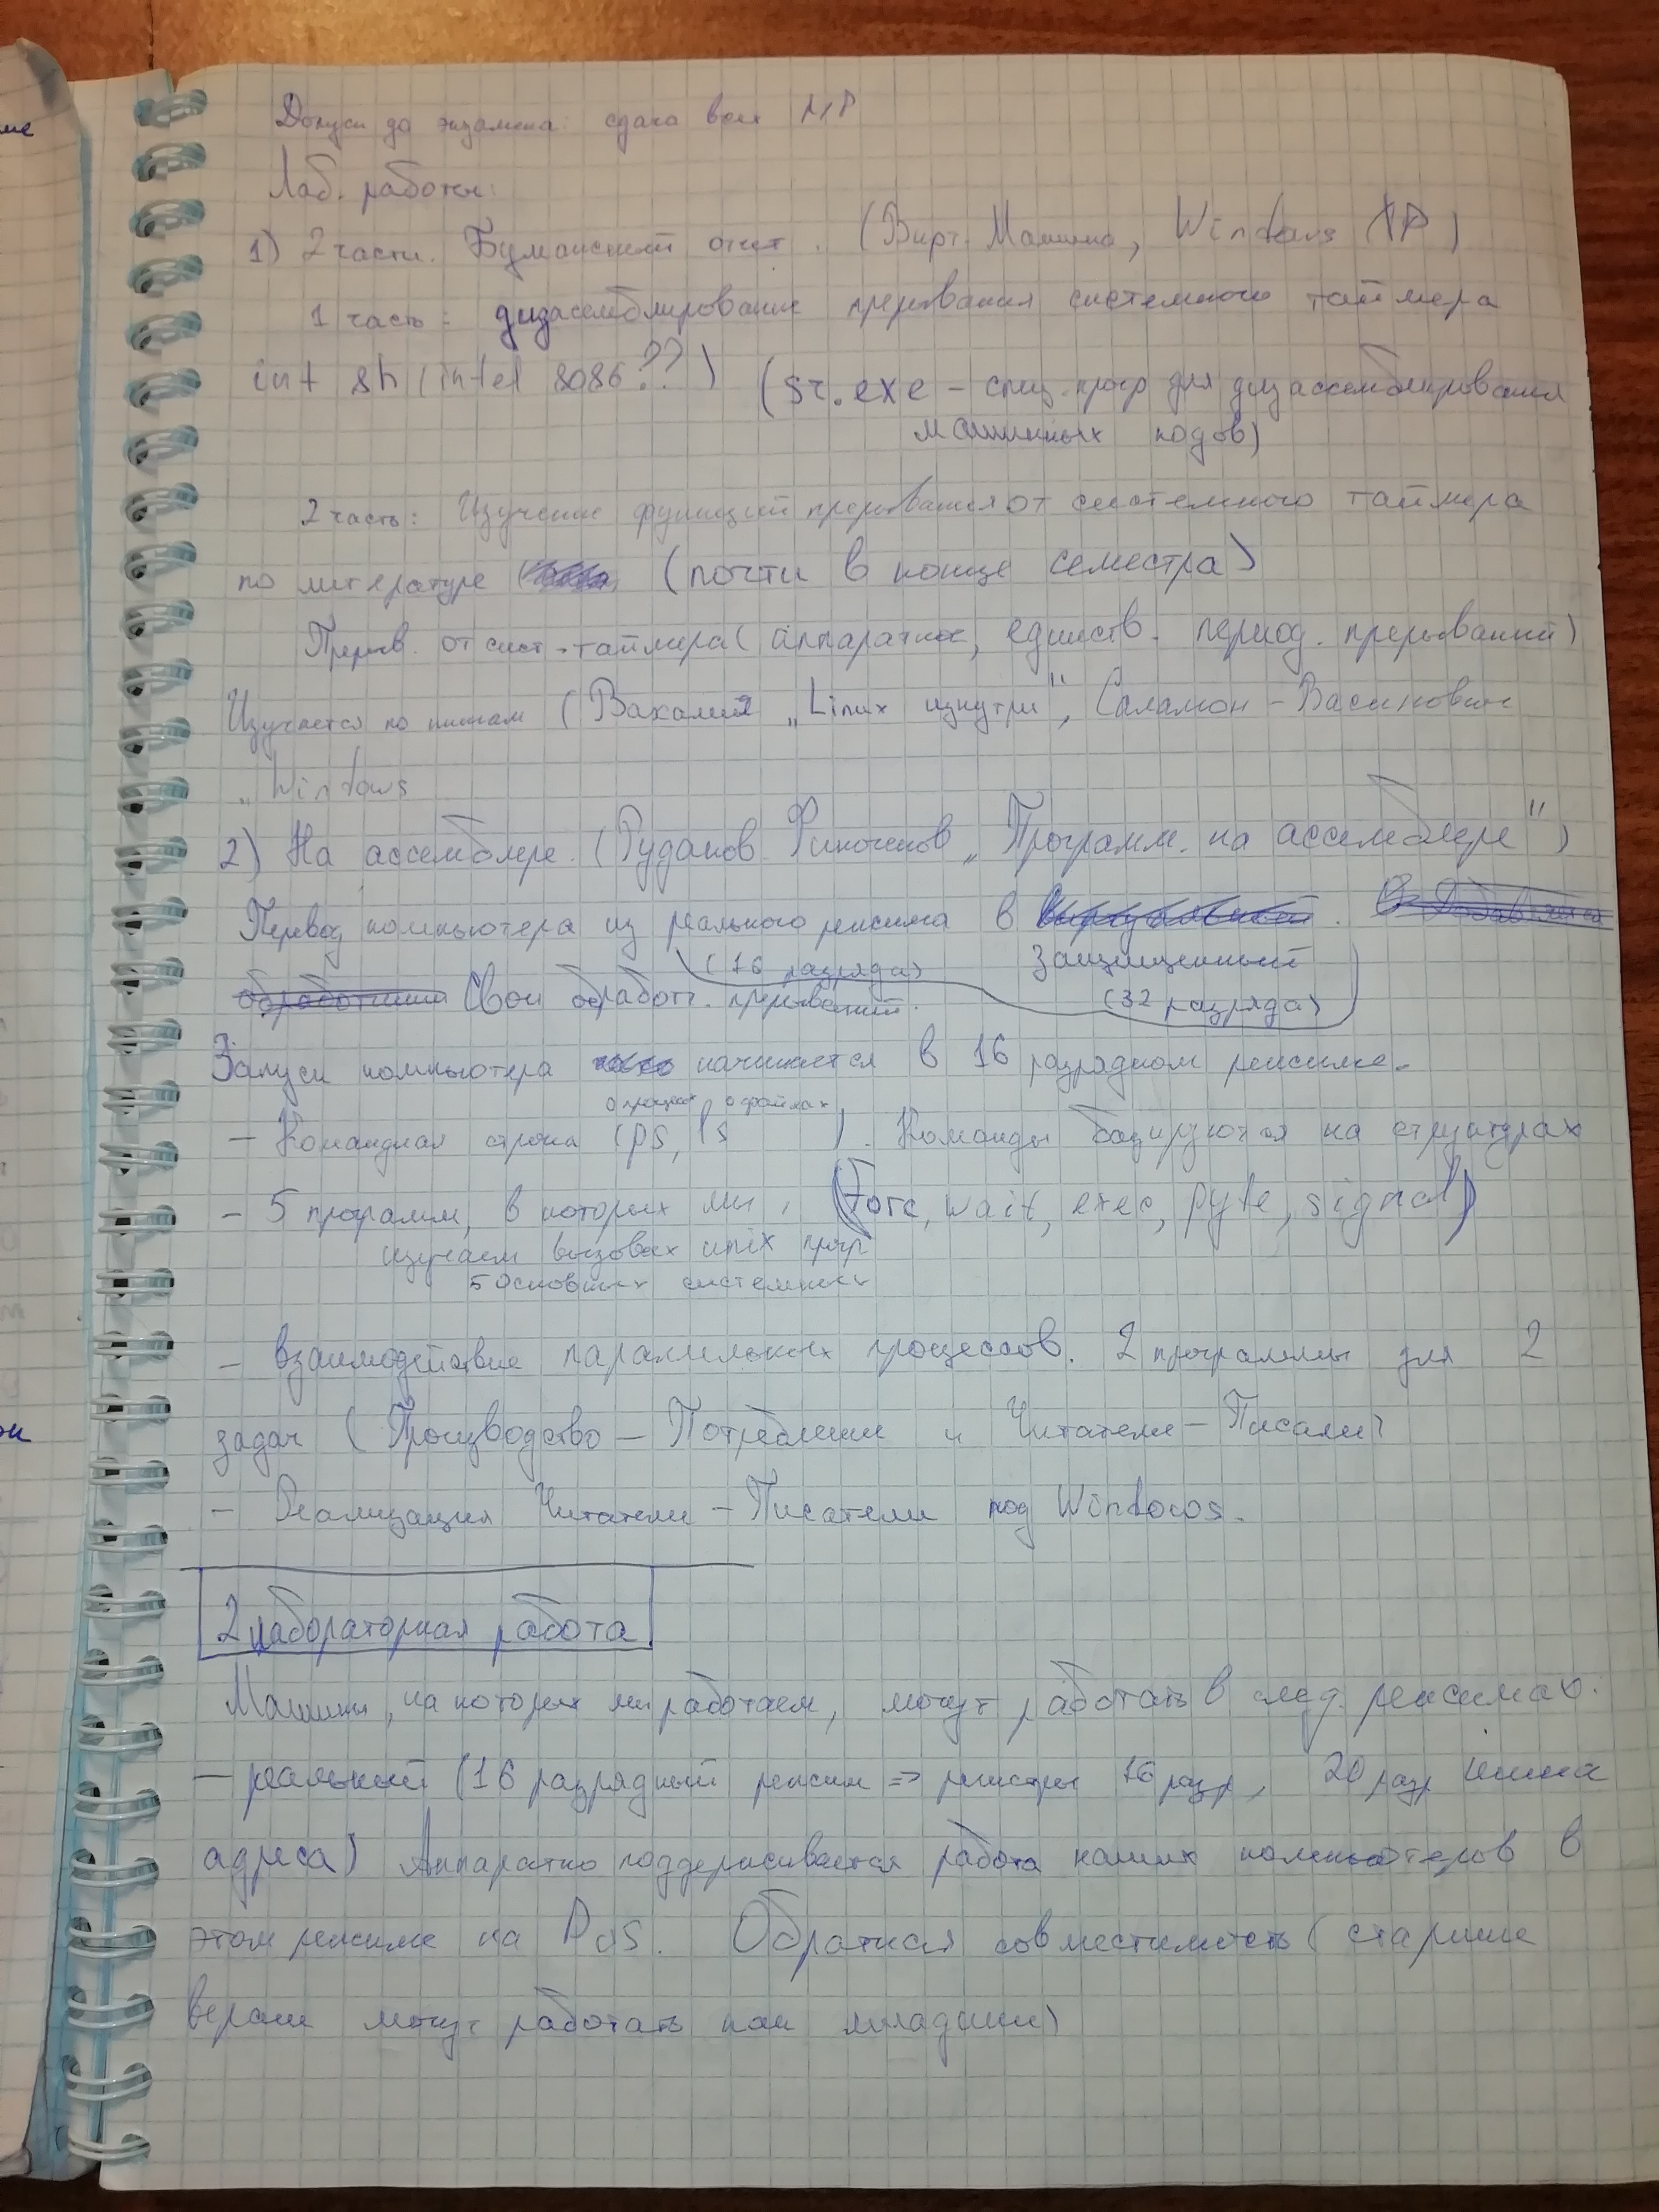 Допуск до экзамена: сдача всех ЛР
Лаб. работы:
1) 2 части. Бумажный отчет. (Вирт. Машина, Windows XP)
1 часть: дизассемблирование прерывания системного таймера
int 8h (intel 8086??) (sr.exe – спец. прогр для дизассемблирования
машинных кодов)
2 часть: Изучение функций прерывания от системного таймера
по литературе (почти в конце семестра)
Прерыв. от сист. таймера (аппаратное, единств. период. прерывание)
Изучается по книгам (Вахалия „Linux изнутри", Саламон – Васинович
„Windows
2) На ассемблере. (Рудаков Финогенов „Программ. на ассемблере")
Перевод компьютера из реального режима в
(16 разряда) защищенный
Свои обработ. прерываний. (32 разряда)
Запуск компьютера начинается в 16 разрядном режиме.
о процессах о файлах
– Командная строка (ps, ls ). Команды базируются на структурах
– 5 программ, в которых мы (forc, wait, exec, pype, signal)
изучаем вызовах unix прогр
5 основных системных
– взаимодействие параллельных процессов. 2 программы для 2
задач (Производство – Потребление и Читатели – Писатели)
– Реализация Читатели – Писатели под Windows.
2 лабораторная работа
Машины, на которых мы работаем, могут работать в след. режимах:
– реальный (16 разрядный режим => регистры 16 разр, 20 разр шина
адреса) Аппаратно поддерживается работа наших компьютеров в
этом режиме на DOS. Обратная совместимость (старшие
версии могут работать как младшие)